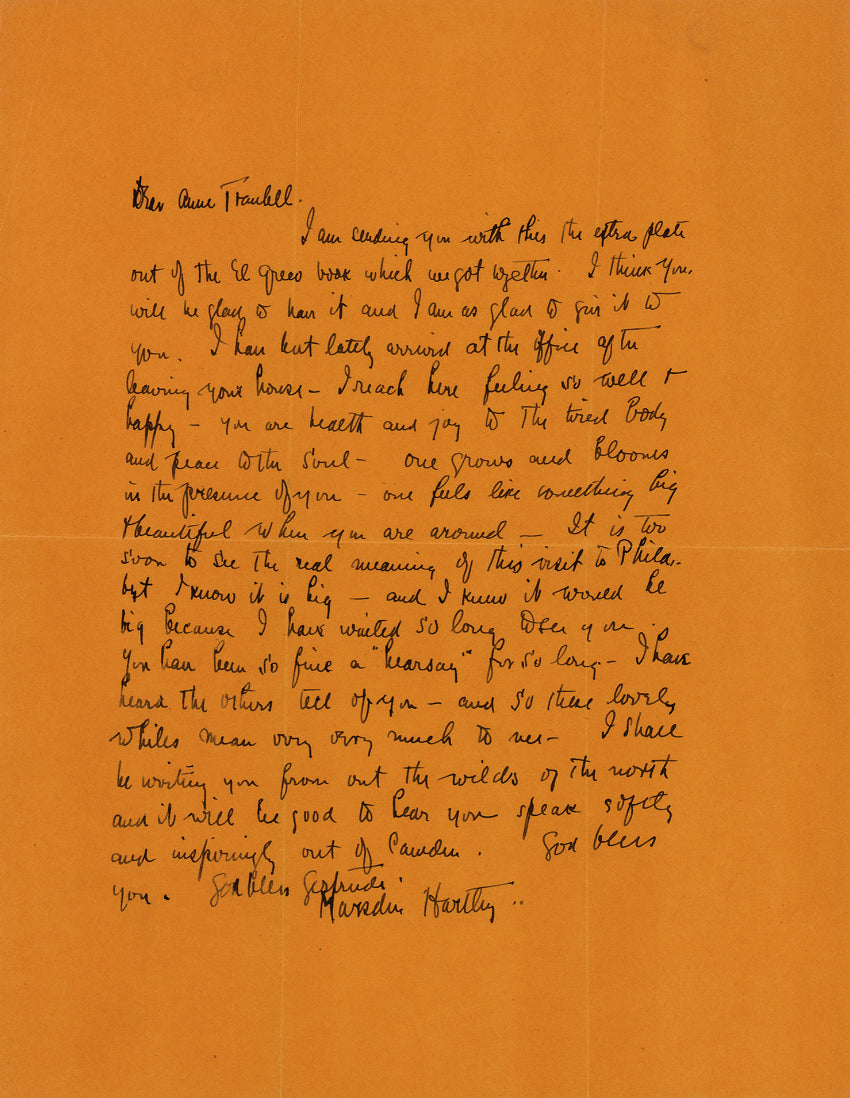 Dear Anne Traubell.
I am sending you with this the extra plate
out of the El Greco book which we got together. I think you
will be glad to have it and I am as glad to give it to
you. I have but lately arrived at the office after
leaving your house – I reach here feeling so well +
happy – you are health and joy to the tired body
and peace to the soul – one grows and blooms
in the presence of you – one feels like something big
+ beautiful when you are around – It is too
soon to see the real meaning of this visit to Phila.
but I know it is big – and I knew it would be
big because I have waited so long to see you.
You have been so fine a "hearsay" for so long – I have
heard the others tell of you – and so these lovely
whiles mean very very much to me – I shall
be writing you from out the wilds of the north
and it will be good to hear you speak softly
and inspiringly out of Camden. God bless
you. God bless Gertrude.
Marsden Hartley